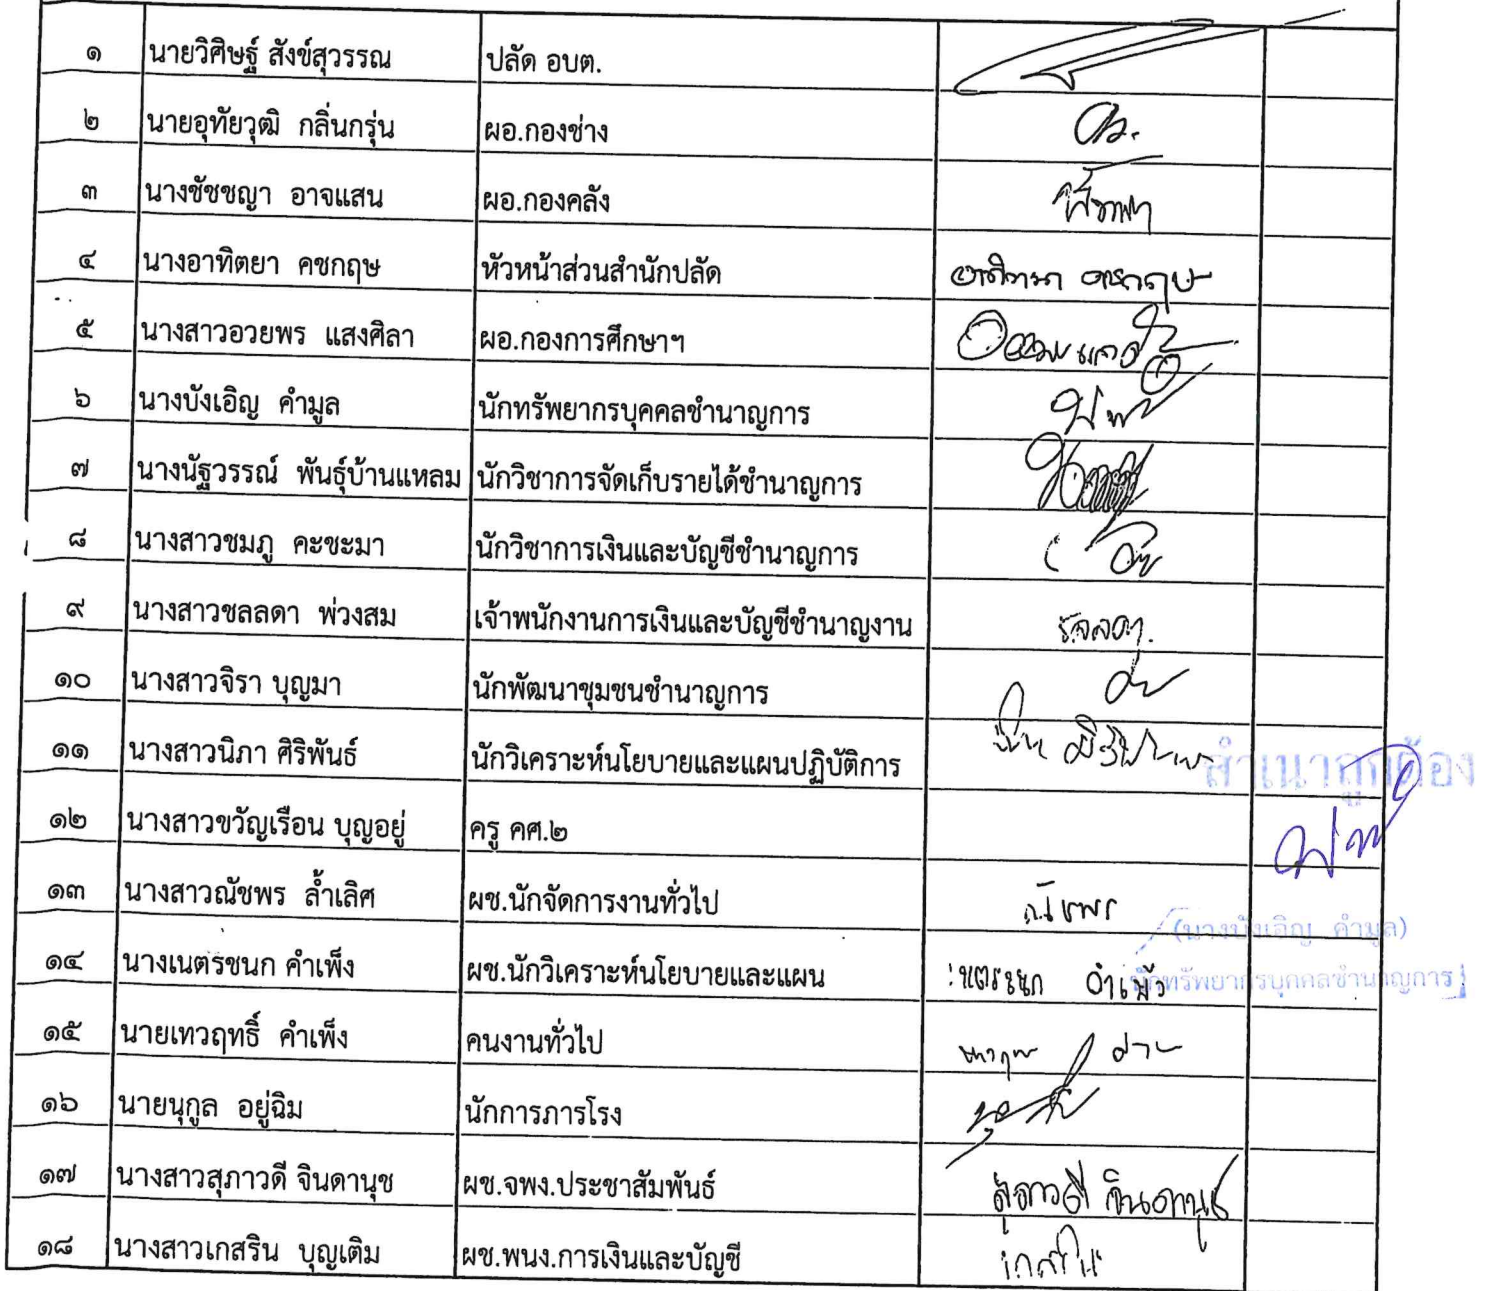 ๑ นายวิศิษฐ์ สังข์สุวรรณ ปลัด อบต.
๒ นายอุทัยวุฒิ กลิ่นกรุ่น ผอ.กองช่าง
๓ นางชัชชญา อาจแสน ผอ.กองคลัง
๔ นางอาทิตยา คชกฤษ หัวหน้าส่วนสำนักปลัด อาทิตยา คชกฤษ
๕ นางสาวอวยพร แสงศิลา ผอ.กองการศึกษาฯ
๖ นางบังเอิญ คำมูล นักทรัพยากรบุคคลชำนาญการ
๗ นางนัฐวรรณ์ พันธุ์บ้านแหลม นักวิชาการจัดเก็บรายได้ชำนาญการ
๘ นางสาวชมภู คะชะมา นักวิชาการเงินและบัญชีชำนาญการ
๙ นางสาวชลลดา พ่วงสม เจ้าพนักงานการเงินและบัญชีชำนาญงาน ชลลดา
๑๐ นางสาวจิรา บุญมา นักพัฒนาชุมชนชำนาญการ
๑๑ นางสาวนิภา ศิริพันธ์ นักวิเคราะห์นโยบายและแผนปฏิบัติการ
สำเนาถูกต้อง
๑๒ นางสาวขวัญเรือน บุญอยู่ ครู คศ.๒
๑๓ นางสาวณัชพร ล้ำเลิศ ผช.นักจัดการงานทั่วไป ณัชพร
(นางบังเอิญ คำมูล)
๑๔ นางเนตรชนก คำเพ็ง ผช.นักวิเคราะห์นโยบายและแผน เนตรชนก คำเพ็ง
นักทรัพยากรบุคคลชำนาญการ
๑๕ นายเทวฤทธิ์ คำเพ็ง คนงานทั่วไป
๑๖ นายนุกูล อยู่ฉิม นักการภารโรง
๑๗ นางสาวสุภาวดี จินดานุช ผช.จพง.ประชาสัมพันธ์ สุภาวดี จินดานุช
๑๘ นางสาวเกสริน บุญเติม ผช.พนง.การเงินและบัญชี เกสริน